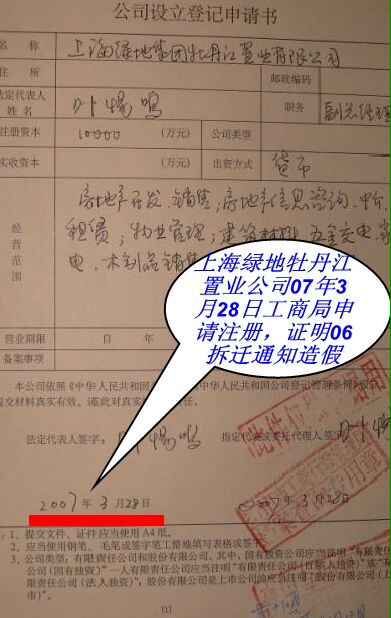 公司设立登记申请书
名 称 上海绿地集团牡丹江置业有限公司
住 所 邮政编码
法定代表人姓名 叶惕鸣 职务 副总经理
注册资本 10000 (万元) 公司类型
实收资本 (万元) 出资方式 货币
经营范围 房地产开发、销售;房地产信息咨询、中介、
租赁;物业管理;建筑材料、五金交电、家
电、木制品销售
上海绿地牡丹江
置业公司07年3
月28日工商局申
请注册，证明06
拆迁通知造假
营业期限 自 年
备案事项
本公司依照《中华人民共和国
提交材料真实有效。谨此对真实
法定代表人签字：叶惕鸣 指定代表或委托代理人签字：
2007年3月28日 2007年3月28日
注：1. 提交文件、证件应当使用A4纸。
2. 应当使用钢笔、毛笔或签字笔工整地填写表格或签字。
3. 公司类型：有限责任公司和股份有限公司。其中，国有独资公司应当注明“有限责任
公司（国有独资）”一人有限责任公司应当注明“有限责任公司（自然人独资）”或“有
限责任公司（法人独资）”，股份有限公司是上市公司的应当注明“股份有限公司（上
市）”。